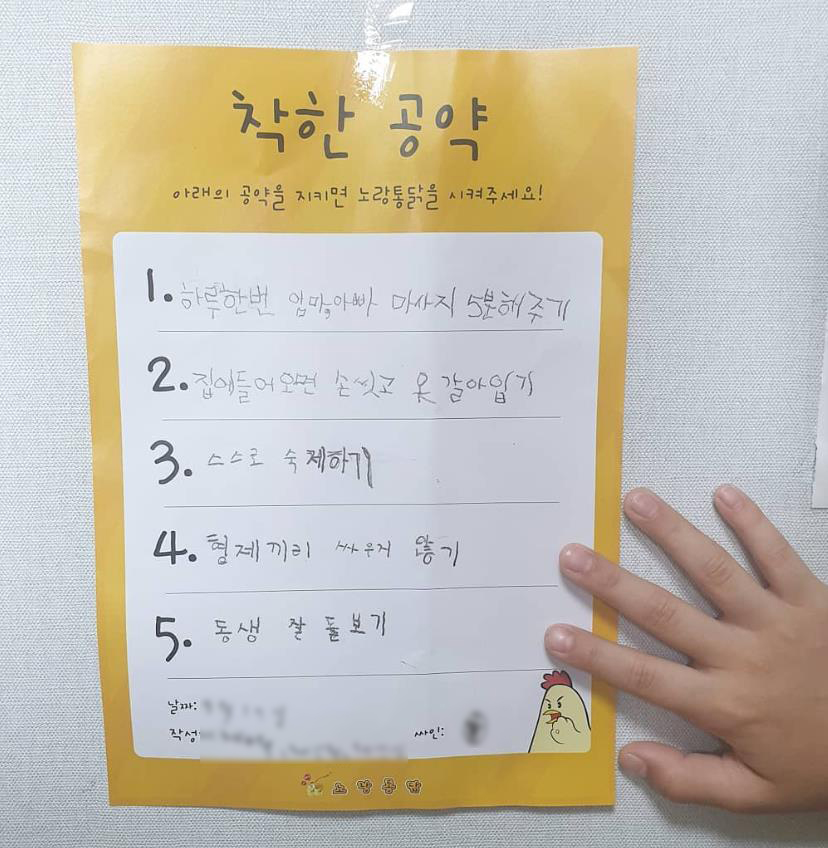 착한 공약
아래의 공약을 지키면 노랑통닭을 시켜주세요!
1. 하루한번 엄마,아빠 마사지 5분해주기
2. 집에들어오면 손씻고 옷 갈아입기
3. 스스로 숙제하기
4. 형제끼리 싸우지 않기
5. 동생 잘 돌보기
날짜:
작성
싸인:
노랑통닭